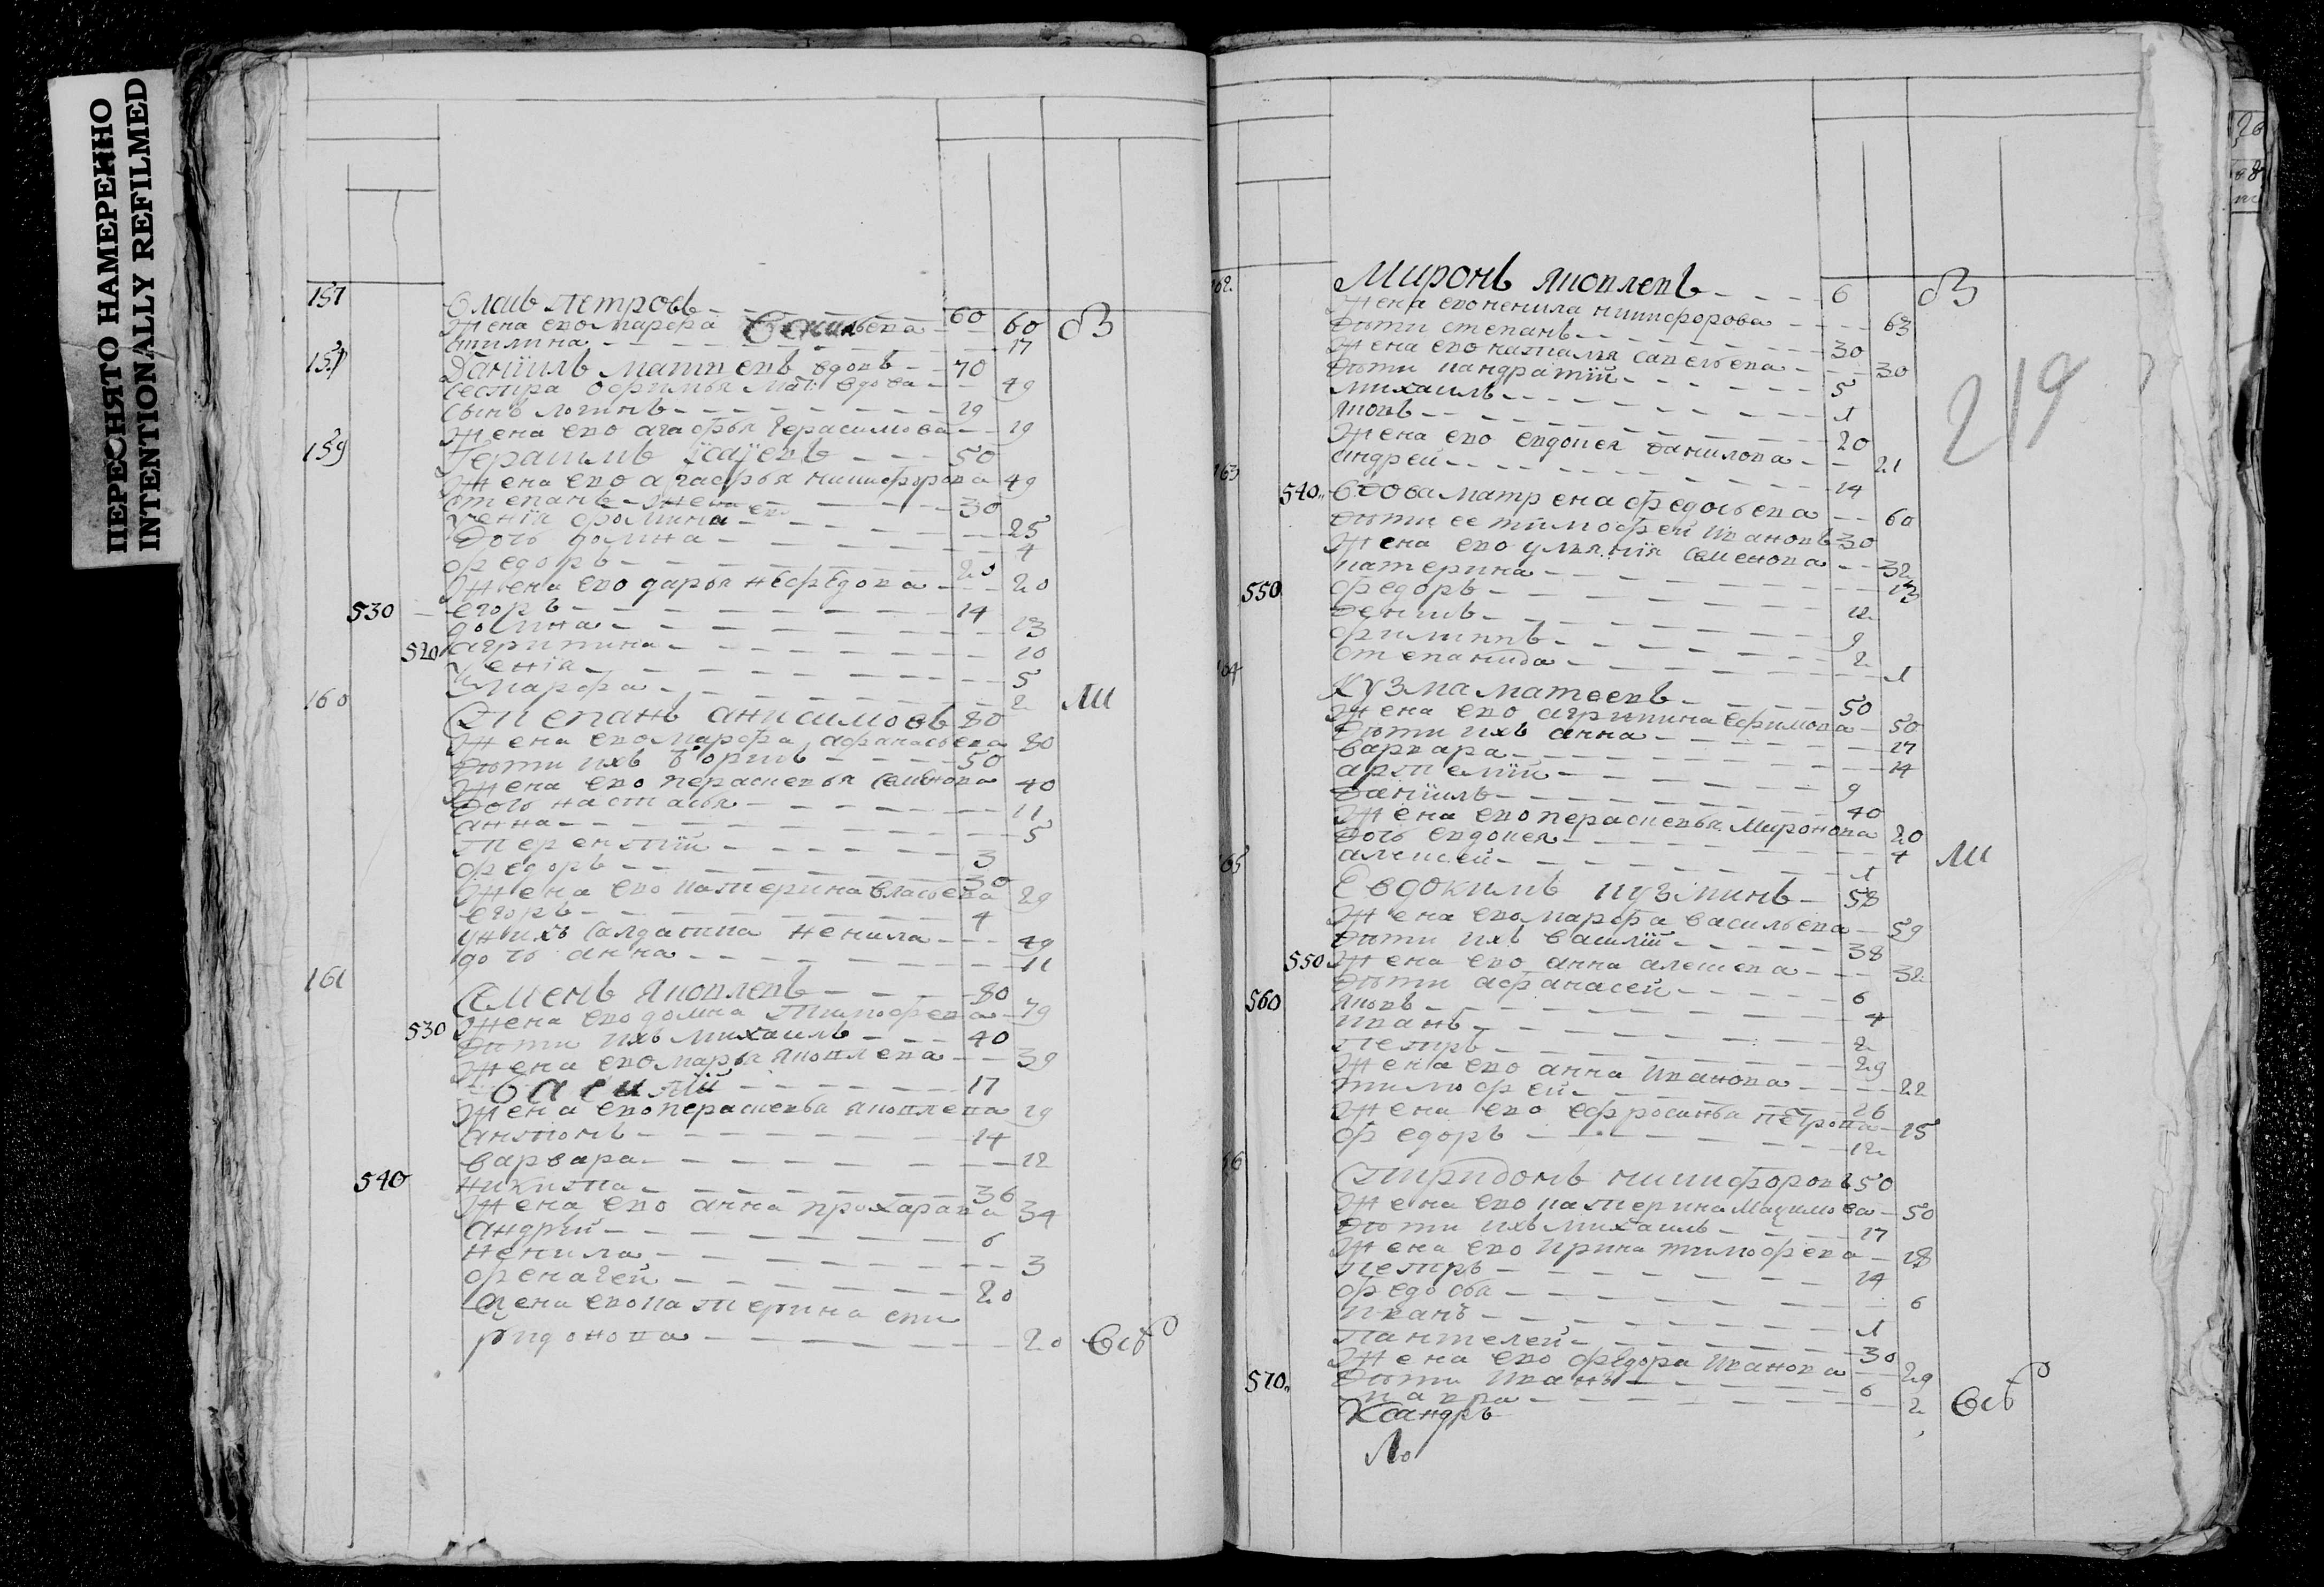 ПЕРЕСНЯТО НАМЕРЕННО
INTENTIONALLY REFILMED
157 Влась петровъ 60
Жена ево марфа Васильева 60 бз
акилина 17
158 Данїилъ матвѣевъ вдовъ 70
Сестра Мат: вдова 49
Сынъ логинъ 19
Жена ево агафья Герасимова 19
159 Герасимъ їсаїевъ 50
Жена ево агафья никифорова 49
Степанъ Жена ево 30
ѯенїя фомина 25
дочь домна 4
федоръ 20
Жена ево дарья нефедова 20
530 егоръ 14
домна 13
520 агрипина 10
ѯенїа 5
марфа 2 ли
160 Степанъ анисимовъ 80
Жена ево марфа афанасьева 80
дѣти ихъ борисъ 50
Жена ево перасковья Семенова 40
дочь настасья 11
анна 5
терентїй 3
федоръ 30
Жена ево катерина власьева 29
егоръ 4
у нихъ Салдатка ненила 49
дочь анна 11
161 Семенъ яковлевъ 80
530 Жена ево домна Тимофева 79
дѣти ихъ михаилъ 40
Жена ево марья яковлева 39
василїй 17
Жена ево перасковья яковлева 19
антонъ 14
варвара 12
540 никита 36
Жена ево анна прохарава 34
андрѣй 6
ненила 3
20
жена ево катерина спи
ридонова 20 Всѣ
162 Миронъ яковлевъ 6 бз
Жена ево ненила никифорова 63
дѣти степанъ 30
Жена ево наталья савельева 30
дѣти кандратїй 5
михаилъ 1
яковъ 20
Жена ево евдокея данилова 21
андрей 14
163
540 Вдова матрена федосьева 60
дѣти ее тимофей Ивановъ 30
Жена ево ульянїя Семенова 32
катерина 13
550 федоръ 12
денисъ 9
филиппъ 2
степанида 1
164 Кузма матвеевъ 50
Жена ево агрипина ефимова 50
дѣти ихъ анна 17
варвара 14
артемїй 9
данїилъ 40
Жена ево перасковья Миронова 20
дочь евдокея 4
алексей 1 ли
165 Евдокимъ кузминъ 58
Жена ево марфа васильева 59
дѣти ихъ василїй 38
550 Жена ево анна алексева 32
дѣти афанасей 6
560 яковъ 4
иванъ 2
петръ 29
Жена ево анна Иванова 22
тимофей 26
Жена ево ефросинья петрова 25
федоръ 12
166 Спиридонъ никифоровъ 50
Жена ево катерина Маѯимова 50
дѣти ихъ михаилъ 17
Жена ево ирина тимофева 18
петръ 14
федосья 6
иванъ 1
пантелей 30
Жена ево федора Иванова 29
570 дѣти иванъ 6
мавра 2 Всѣ
Ксандръ
Ло
219